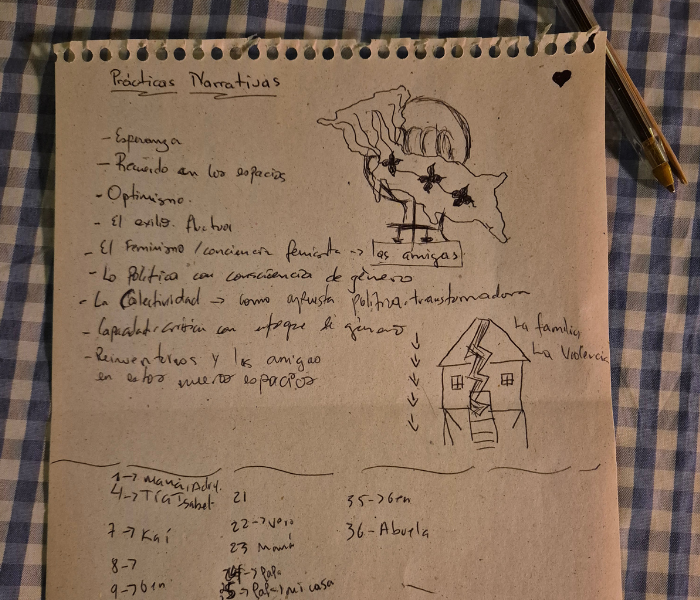 Prácticas Narrativas
- Esperanza
- Recuerdo en los espacios
- Optimismo.
- El exilio.
- El Feminismo / conciencia feminista -> las amigas
- Lo Política con consciencia de género
- La Colectividad -> como apuesta política, transformadora
- Capacidad crítica con enfoque de género
- Reinventirnos y las amigas
en estos nuevos espacios
La familia
La Violencia
1-> mamá, Adry.
4-> Tía Isabel
7-> Kai
8->
9-> Gen
21
22->
23 mamá
-> Papa
-> Papa > mi casa
35-> Gen
36- Abuela